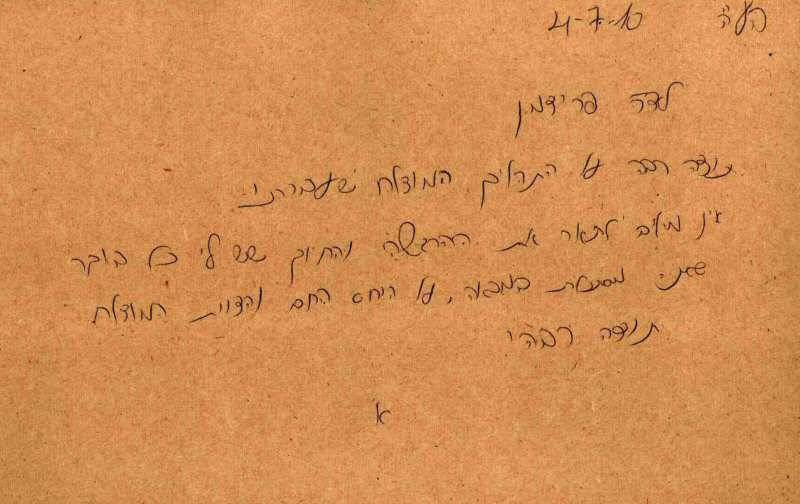 בע"ה 4-7-10
לעדה פרידמן
תודה רבה על התהליך המוצלח שעברתי
אין מילים לתאר את ההרגשה והחיוך שיש לי כל בוקר
שאני מסתכלת במראה, על היחס החם והצוות המוצלח
תודה רבה!
א